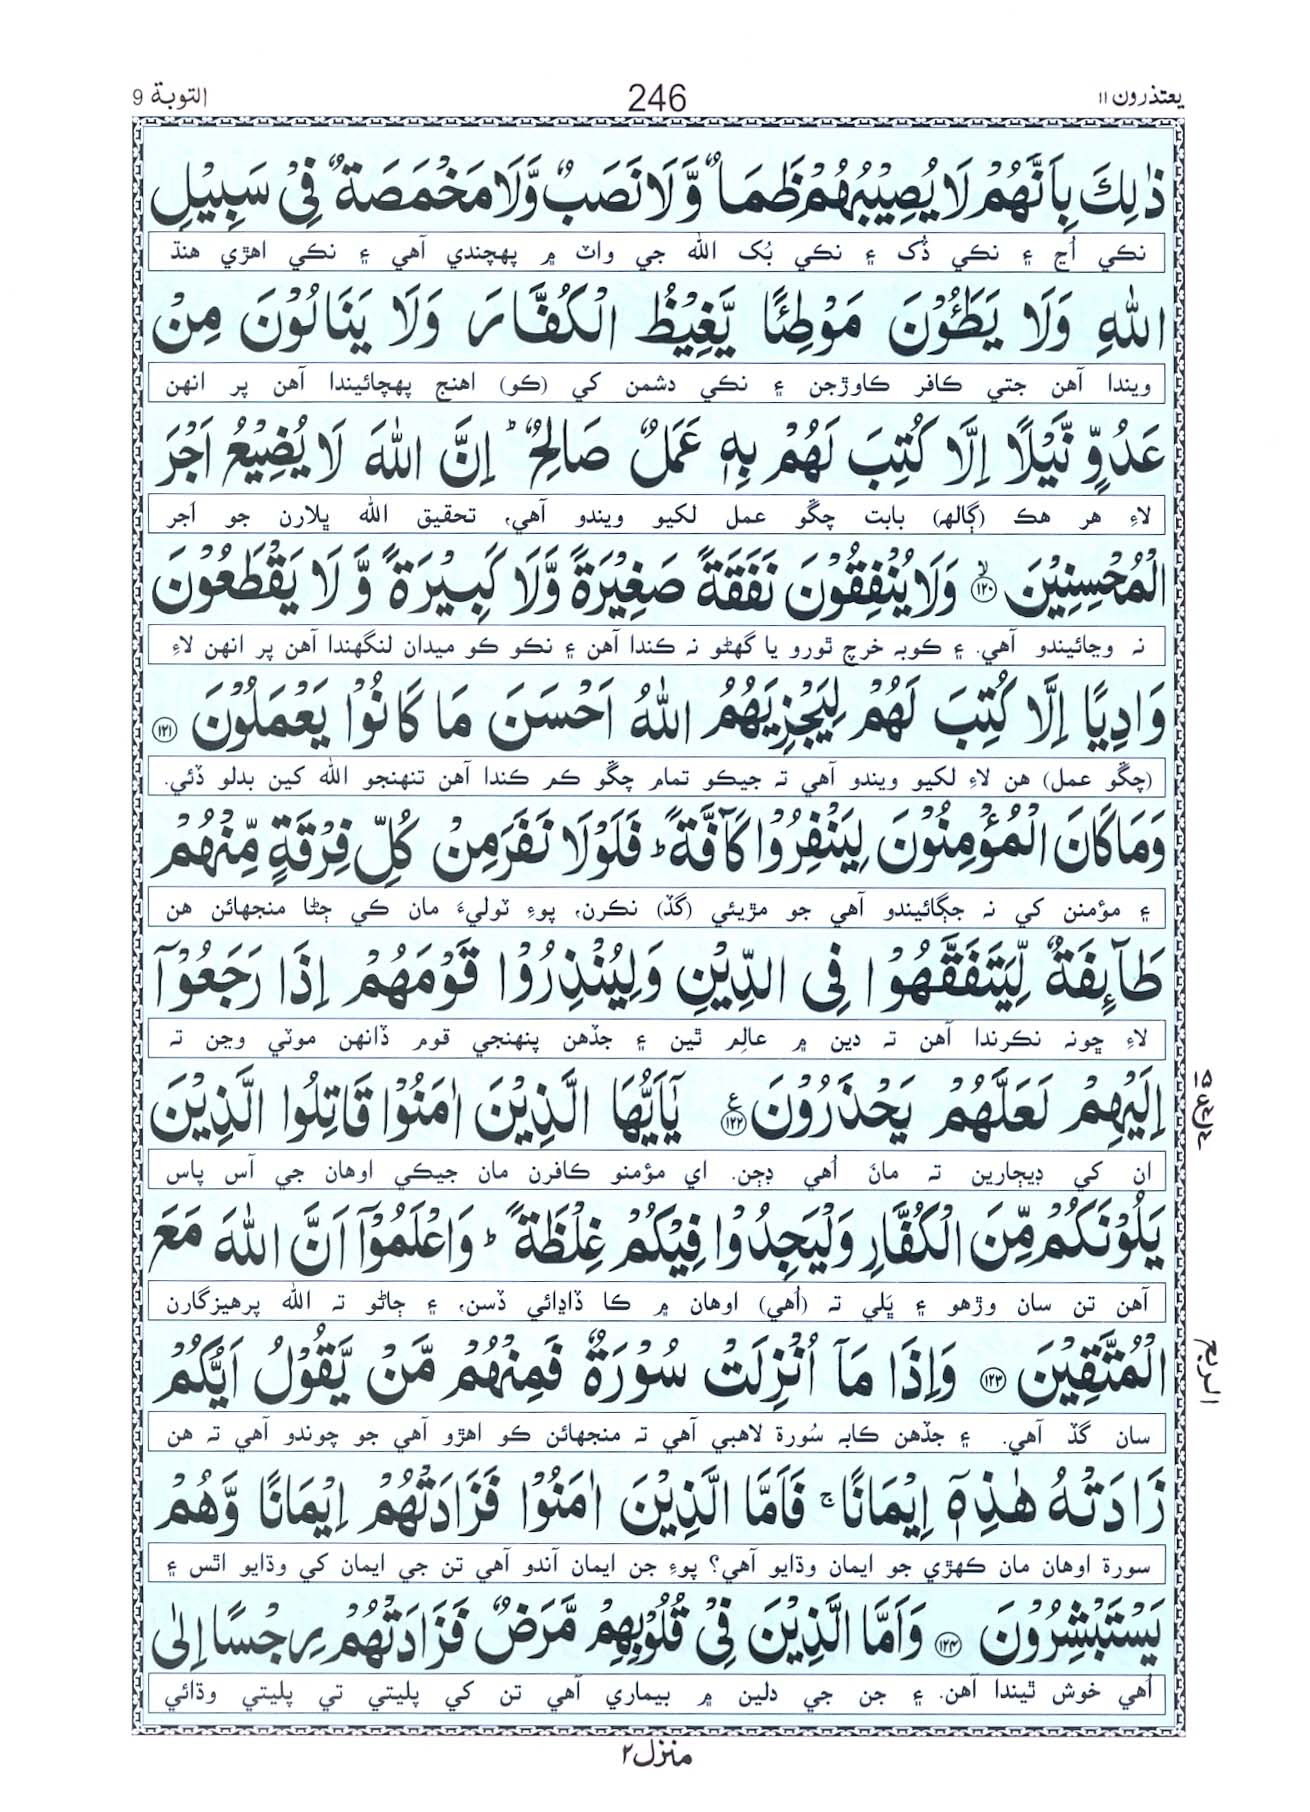 يعتذرون ١١
246
التوبة 9
ذٰلِكَ بِاَنَّهُمْ لَا يُصِيْبُهُمْ ظَمَاٌ وَّلَا نَصَبٌ وَّلَا مَخْمَصَةٌ فِيْ سَبِيْلِ
نڪي اُڃ ۽ نڪي ڏُک ۽ نڪي بُک الله جي واٽ ۾ پهچندي آهي ۽ نڪي اهڙي هنڌ
اللّٰهِ وَلَا يَطَـُٔوْنَ مَوْطِئًا يَّغِيْظُ الْكُفَّارَ وَلَا يَنَالُوْنَ مِنْ
ويندا آهن جتي ڪافر ڪاوڙجن ۽ نڪي دشمن کي (ڪو) اهنج پهچائيندا آهن پر انهن
عَدُوٍّ نَّيْلًا اِلَّا كُتِبَ لَهُمْ بِهٖ عَمَلٌ صَالِحٌ ؕ اِنَّ اللّٰهَ لَا يُضِيْعُ اَجْرَ
لاءِ هر هڪ (ڳالهه) بابت چڱو عمل لکيو ويندو آهي، تحقيق الله ڀلارن جو اَجر
الْمُحْسِنِيْنَ ۙ﴿١٢٠﴾ وَلَا يُنْفِقُوْنَ نَفَقَةً صَغِيْرَةً وَّلَا كَبِيْرَةً وَّلَا يَقْطَعُوْنَ
نه وڃائيندو آهي. ۽ ڪوبه خرچ ٿورو يا گهڻو نه ڪندا آهن ۽ نڪو ڪو ميدان لنگهندا آهن پر انهن لاءِ
وَادِيًا اِلَّا كُتِبَ لَهُمْ لِيَجْزِيَهُمُ اللّٰهُ اَحْسَنَ مَا كَانُوْا يَعْمَلُوْنَ ﴿١٢١﴾
(چڱو عمل) هن لاءِ لکيو ويندو آهي ته جيڪو تمام چڱو ڪم ڪندا آهن تنهنجو الله کين بدلو ڏئي.
وَمَا كَانَ الْمُؤْمِنُوْنَ لِيَنْفِرُوْا كَآفَّةً ؕ فَلَوْلَا نَفَرَ مِنْ كُلِّ فِرْقَةٍ مِّنْهُمْ
۽ مؤمنن کي نه جڳائيندو آهي جو مڙيئي (گڏ) نڪرن، پوءِ ٽوليءَ مان ڪي ڄڻا منجهائن هن
طَآئِفَةٌ لِّيَتَفَقَّهُوْا فِى الدِّيْنِ وَلِيُنْذِرُوْا قَوْمَهُمْ اِذَا رَجَعُوْٓا
لاءِ ڇونه نڪرندا آهن ته دين ۾ عالِم ٿين ۽ جڏهن پنهنجي قوم ڏانهن موٽي وڃن ته
اِلَيْهِمْ لَعَلَّهُمْ يَحْذَرُوْنَ ع﴿١٢٢﴾ يٰٓاَيُّهَا الَّذِيْنَ اٰمَنُوْا قَاتِلُوا الَّذِيْنَ
ان کي ڊيڄارين ته مان اُهي ڊڄن. اي مؤمنو ڪافرن مان جيڪي اوهان جي آس پاس
يَلُوْنَكُمْ مِّنَ الْكُفَّارِ وَلْيَجِدُوْا فِيْكُمْ غِلْظَةً ؕ وَاعْلَمُوْٓا اَنَّ اللّٰهَ مَعَ
آهن تن سان وڙهو ۽ ڀَلي ته (اُهي) اوهان ۾ ڪا ڏاڍائي ڏسن، ۽ ڄاڻو ته الله پرهيزگارن
الْمُتَّقِيْنَ ﴿١٢٣﴾ وَاِذَا مَآ اُنْزِلَتْ سُوْرَةٌ فَمِنْهُمْ مَّنْ يَّقُوْلُ اَيُّكُمْ
الربع
سان گڏ آهي. ۽ جڏهن ڪابه سُورة لاهبي آهي ته منجهائن ڪو اهڙو آهي جو چوندو آهي ته هن
زَادَتْهُ هٰذِهٖٓ اِيْمَانًا ۚ فَاَمَّا الَّذِيْنَ اٰمَنُوْا فَزَادَتْهُمْ اِيْمَانًا وَّهُمْ
سورة اوهان مان ڪهڙي جو ايمان وڌايو آهي؟ پوءِ جن ايمان آندو آهي تن جي ايمان کي وڌايو اٿس ۽
يَسْتَبْشِرُوْنَ ﴿١٢٤﴾ وَاَمَّا الَّذِيْنَ فِيْ قُلُوْبِهِمْ مَّرَضٌ فَزَادَتْهُمْ رِجْسًا اِلٰى
اُهي خوش ٿيندا آهن. ۽ جن جي دلين ۾ بيماري آهي تن کي پليتي تي پليتي وڌائي
منزل ٢